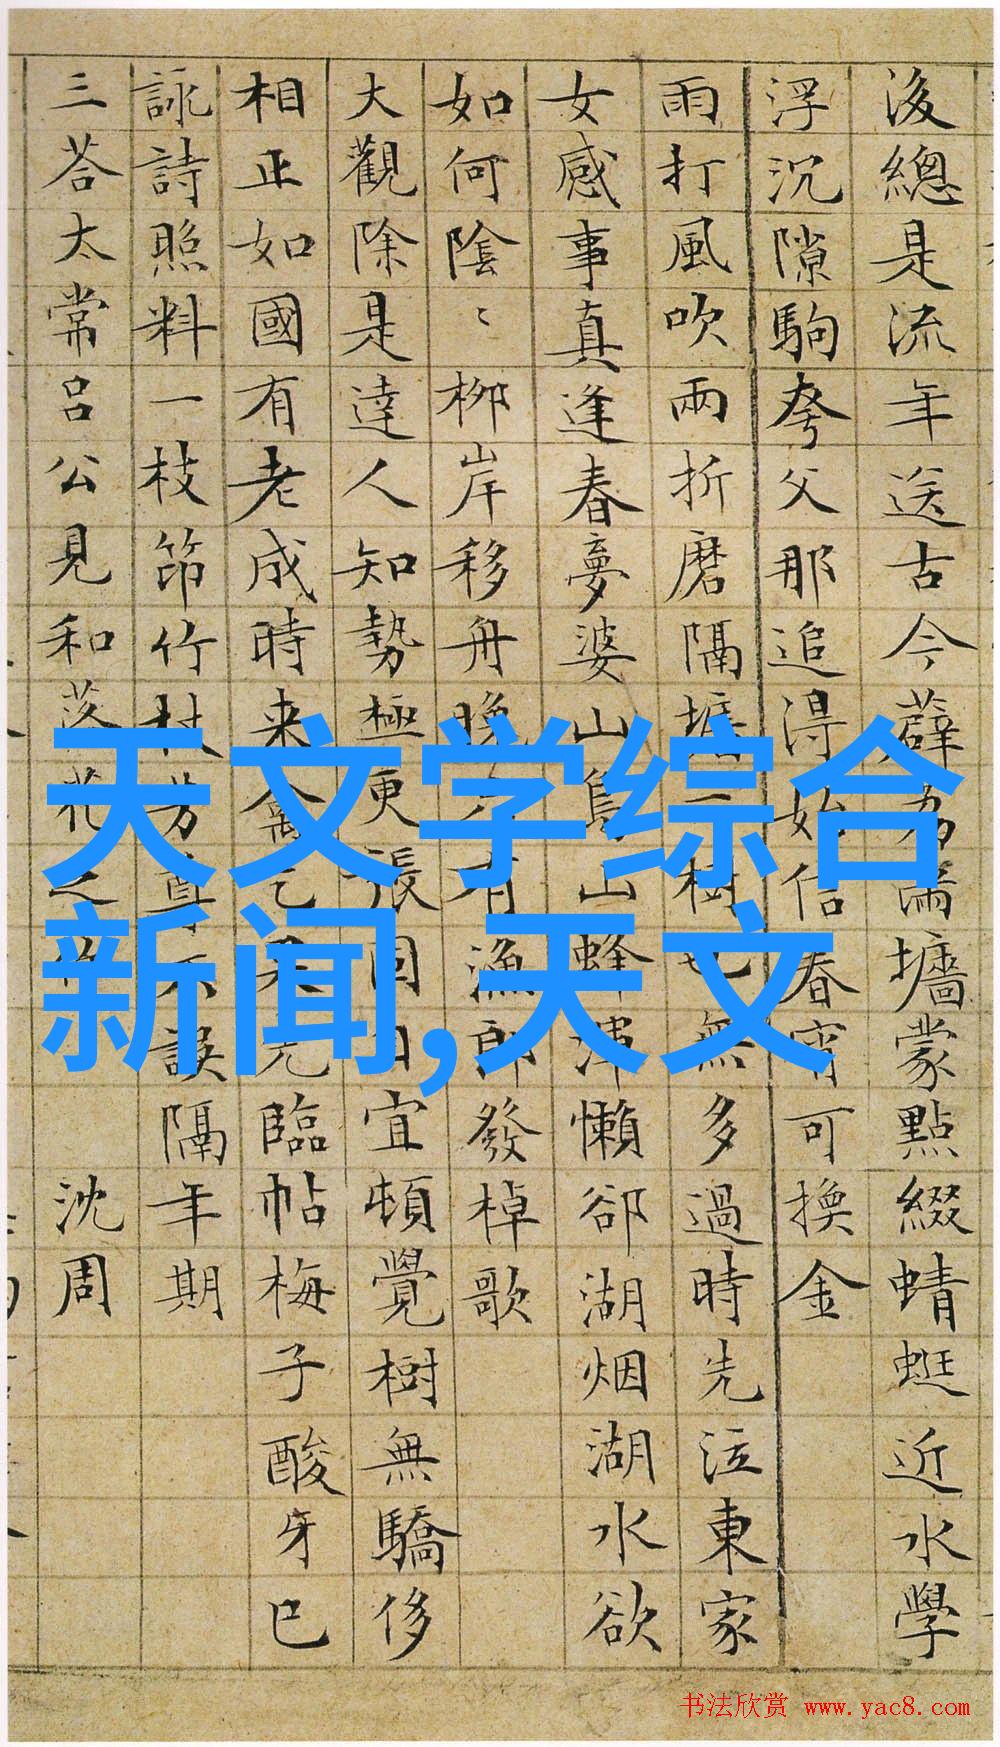 後總是流年送古今薜荔滿墻蒙點綴蜻蜓近水學
浮沉隙駒夸父那追得始信春宵可換金
雨打風吹兩折磨隔墻一樹也無多過時先泣東家
女感事真逢春夢婆山鳥山蜂渾懶卻湖烟湖水欲
如何陰〻柳岸移舟晚有漁郎發棹歌
大觀除是達人知勢極更張回日宜頓覺樹無驕侈
相正如國有老成時来禽已臨帖梅子酸牙已
詠詩照料一枝笻竹杖芳尊不誤隔年期
三荅太常呂公見和落花之作 沈周
天文学综合
新闻,天文
书法欣赏 www.yac8.com